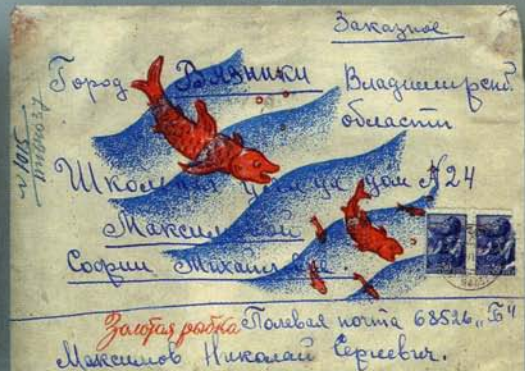 Заказное
Город Вязники Владимирской
области
Школьная улица дом №24
Максимовой
Софии Михайловне.
№ 1015
Золотая рыбка
Полевая почта 68526 „Б"
Максимов Николай Сергеевич.